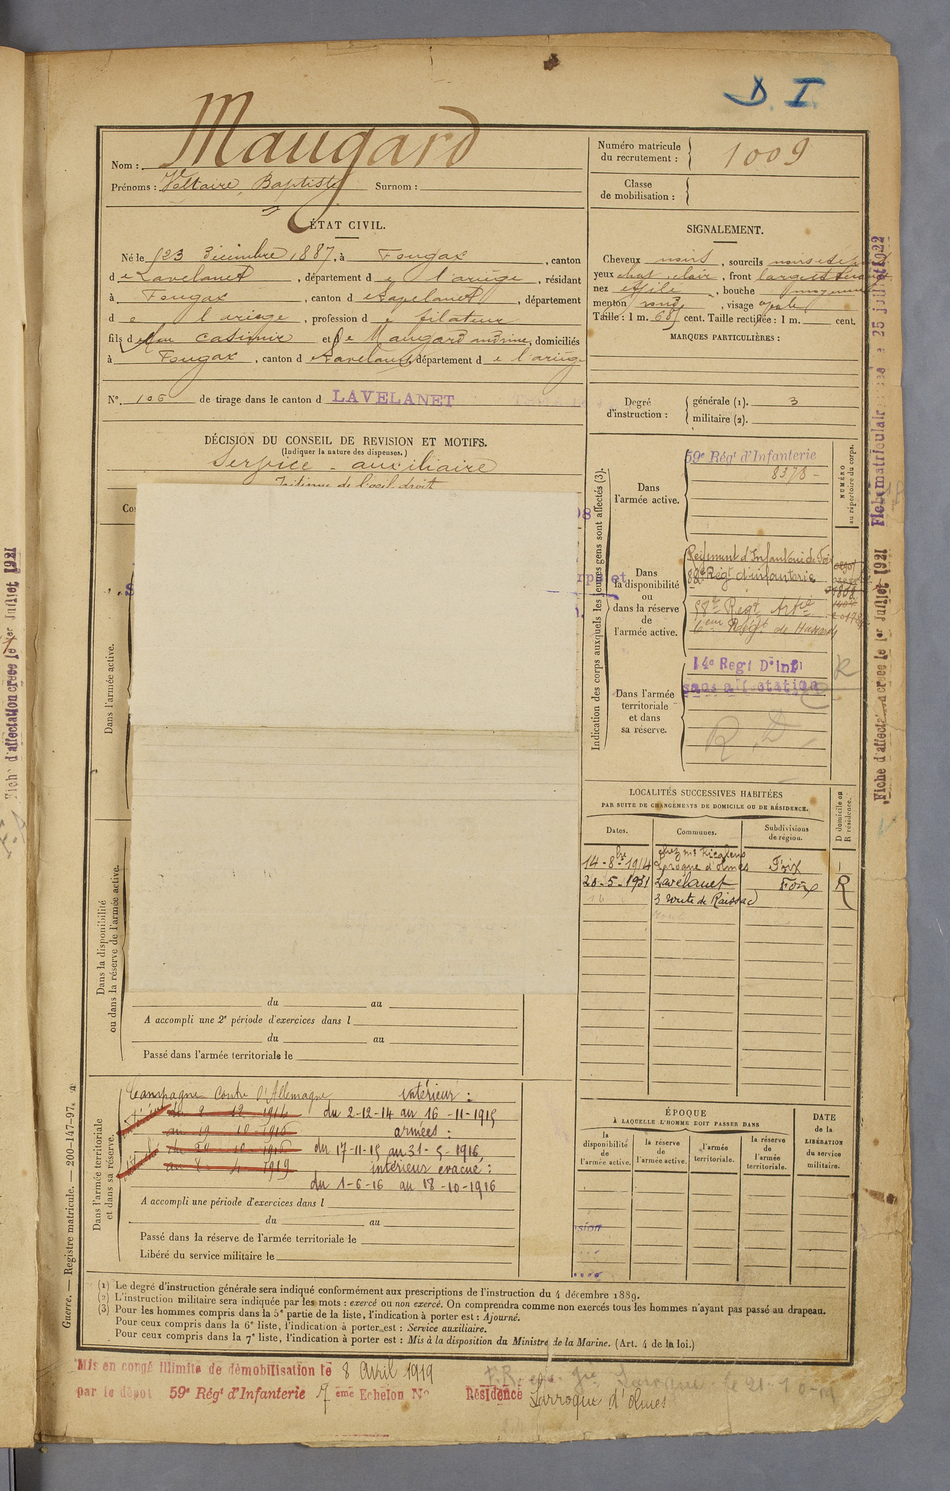 D. I.
Maugard
Nom :
Prénoms : Voltaire, Baptiste Surnom :
ÉTAT CIVIL.
Né le 23 décembre 1887, à Fougax, canton
de Lavelanet, département de l'ariège, résidant
à Fougax, canton de Lavelanet, département
de l'ariège, profession de filateur
fils de feu Casimir et de Maugard, domiciliés
à Fougax, canton de Lavelanet, département de l'ariège
N°. 106 de tirage dans le canton d LAVELANET
DÉCISION DU CONSEIL DE REVISION ET MOTIFS.
(Indiquer la nature des dispenses.)
Service auxiliaire
de l'oeil droit
Numéro matricule
du recrutement : 1009
Classe
de mobilisation :
SIGNALEMENT.
Cheveux noirs, sourcils noirs
yeux clair, front large
nez effilé, bouche moyenne
menton rond, visage ovale
Taille : 1 m. 68 cent. Taille rectifiée : 1 m. cent.
MARQUES PARTICULIÈRES :
Degré
d'instruction :
générale (1). 3
militaire (2).
Indication des corps auxquels les jeunes gens sont affectés (3).
NUMÉRO
au répertoire du corps.
Dans
l'armée active.
59e Régt d'Infanterie
8378 -
Dans
la disponibilité
ou
dans la réserve
de
l'armée active.
Régiment d'Infanterie de Foix
88e Régt d'infanterie
58e Régt Artie
6ème Régt de Hussards
14e Regt D'Inf
sans affectation
Dans l'armée
territoriale
et dans
sa réserve.
R
R. D.
LOCALITÉS SUCCESSIVES HABITÉES
PAR SUITE DE CHANGEMENTS DE DOMICILE OU DE RÉSIDENCE.
Dates. Communes. Subdivisions
de région.
D domicile ou
R résidence.
14-8bre 1914 Laroque d'olmes Foix
20-5-1931 Lavelanet Foix R
3 route de Raissac
Dans l'armée active.
Dans la disponibilité
ou dans la réserve de l'armée active.
du au
A accompli une 2e période d'exercices dans l
du au
Passé dans l'armée territoriale le
Dans l'armée territoriale
et dans sa réserve.
Campagne contre l'Allemagne intérieur :
du 2-12-14 au 16-11-1915
armées :
du 17-11-15 au 31-5-1916,
intérieur évacué :
du 1-6-16 au 18-10-1916
A accompli une période d'exercices dans l
du au
Passé dans la réserve de l'armée territoriale le
Libéré du service militaire le
ÉPOQUE
À LAQUELLE L'HOMME DOIT PASSER DANS
la
disponibilité
de
l'armée active.
la réserve
de
l'armée active.
l'armée
territoriale.
la réserve
de
l'armée
territoriale.
DATE
de la
LIBÉRATION
du service
militaire.
(1) Le degré d'instruction générale sera indiqué conformément aux prescriptions de l'instruction du 4 décembre 1889.
(2) L'instruction militaire sera indiquée par les mots : exercé ou non exercé. On comprendra comme non exercés tous les hommes n'ayant pas passé au drapeau.
(3) Pour les hommes compris dans la 5e partie de la liste, l'indication à porter est : Ajourné.
Pour ceux compris dans la 6e liste, l'indication à porter est : Service auxiliaire.
Pour ceux compris dans la 7e liste, l'indication à porter est : Mis à la disposition du Ministre de la Marine. (Art. 4 de la loi.)
Mis en congé illimité de démobilisation le 8 Avril 1919
par le dépôt 59e Régt d'Infanterie 7 ème Echelon N° Résidence Larroque d'olmes
Guerre. — Registre matricule. — 200-147-97.
Fiche d'affectation créée le 1er Juillet 1921
Fiche d'affectation créée le 1er Juillet 1921
Fiche matriculaire 25 juillet 1922